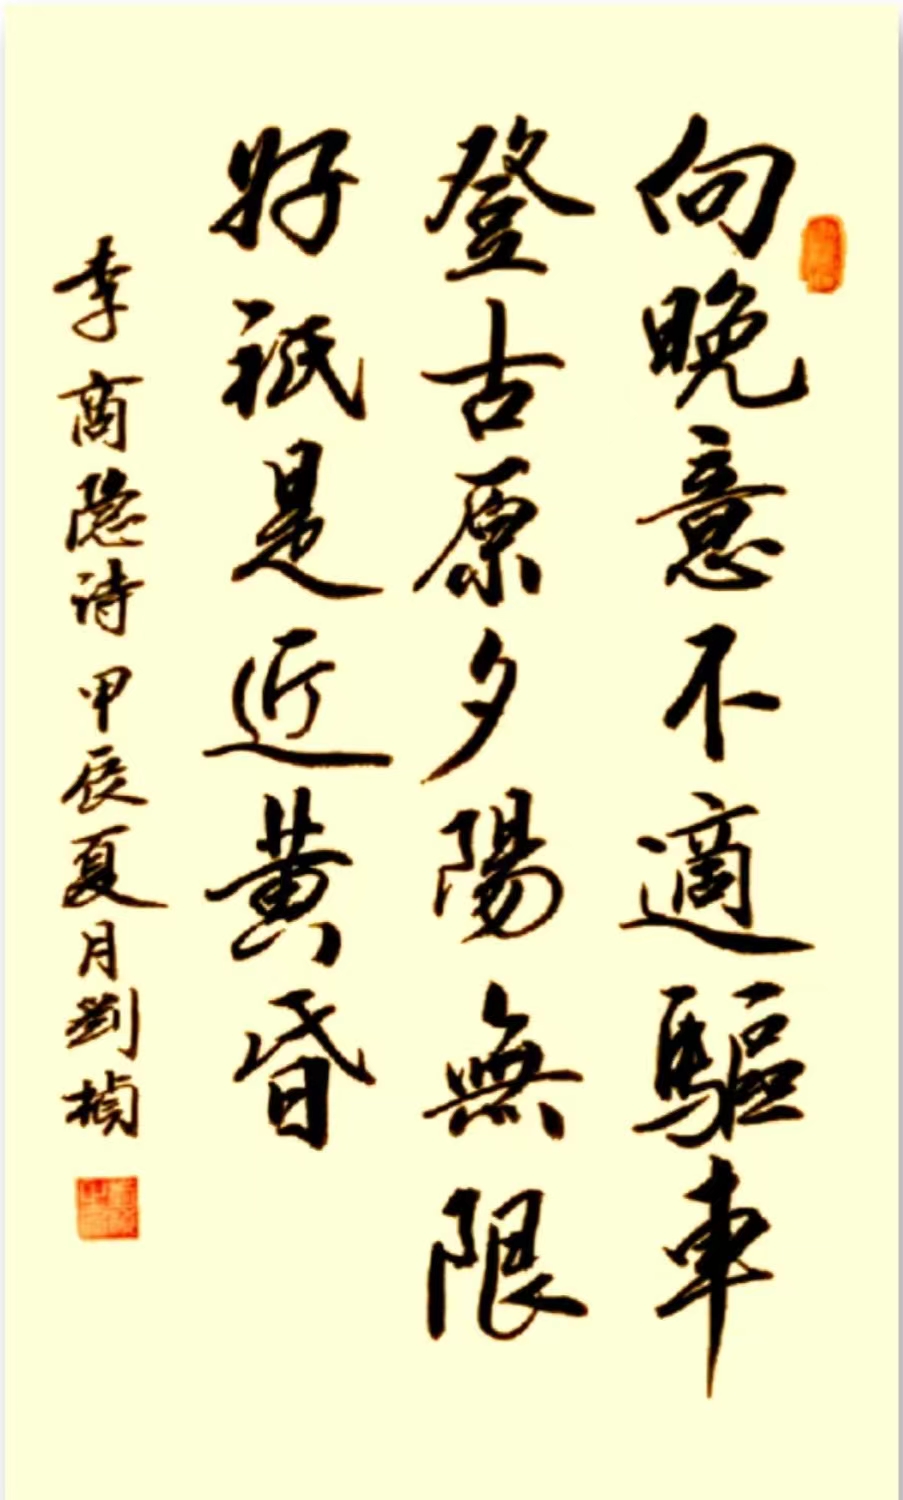 向晚意不適驅車
登古原夕陽無限
好祇是近黄昏
李商隐诗甲辰夏月劉楨